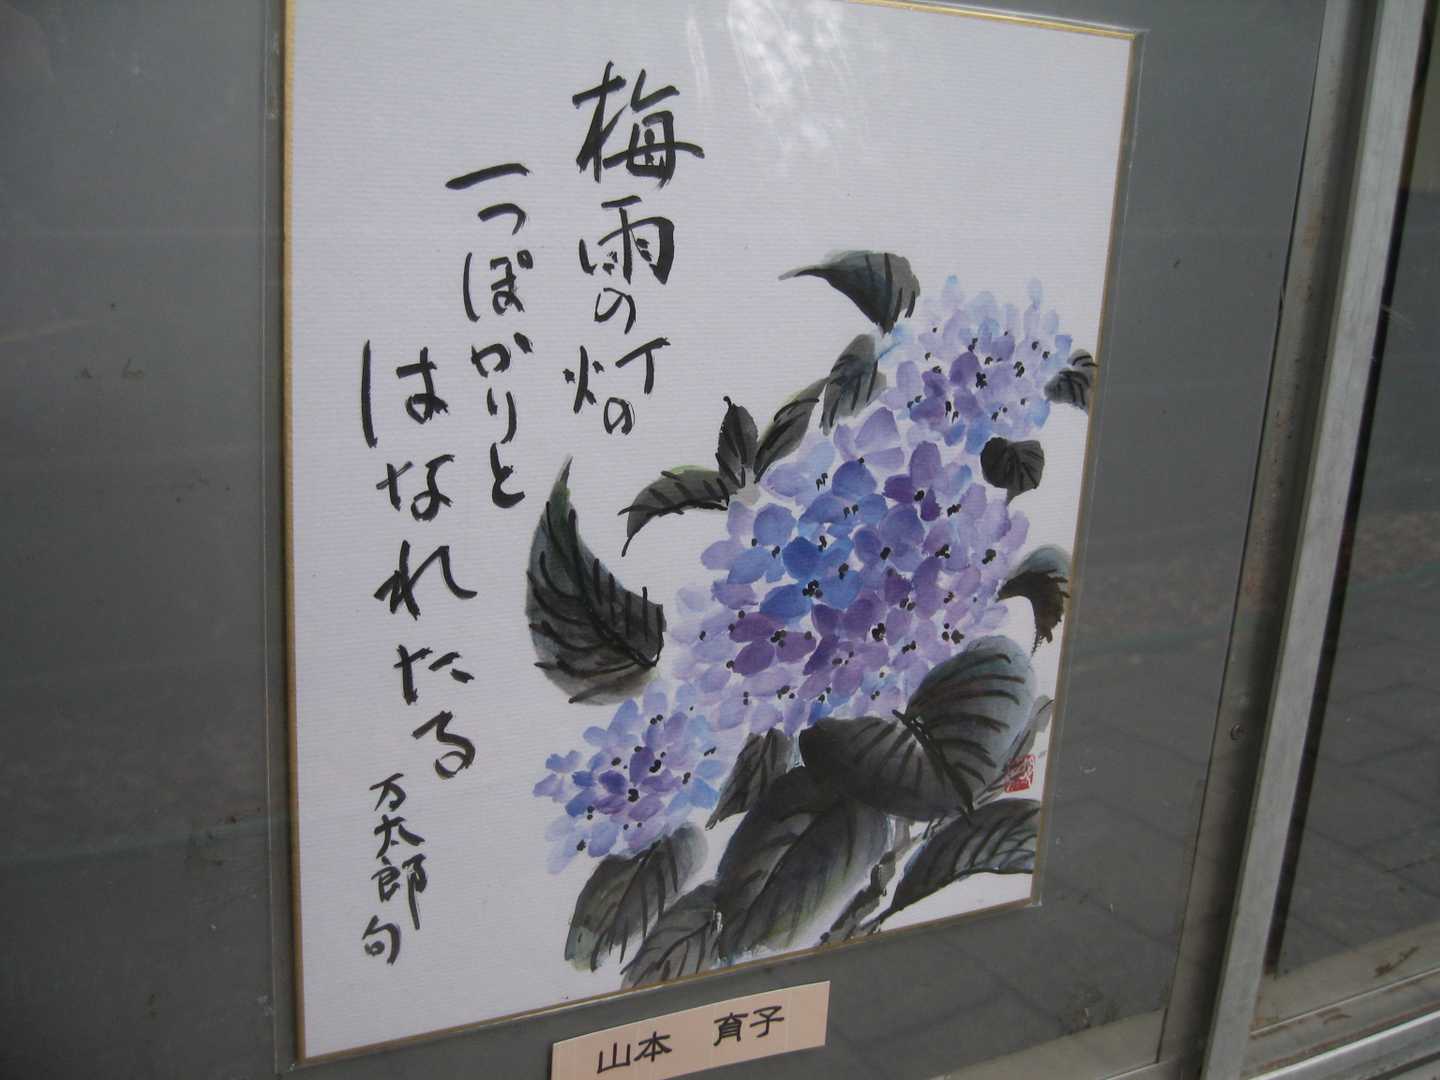 梅雨の灯の
一つぽかりと
はなれたる
万太郎句
山本　育子